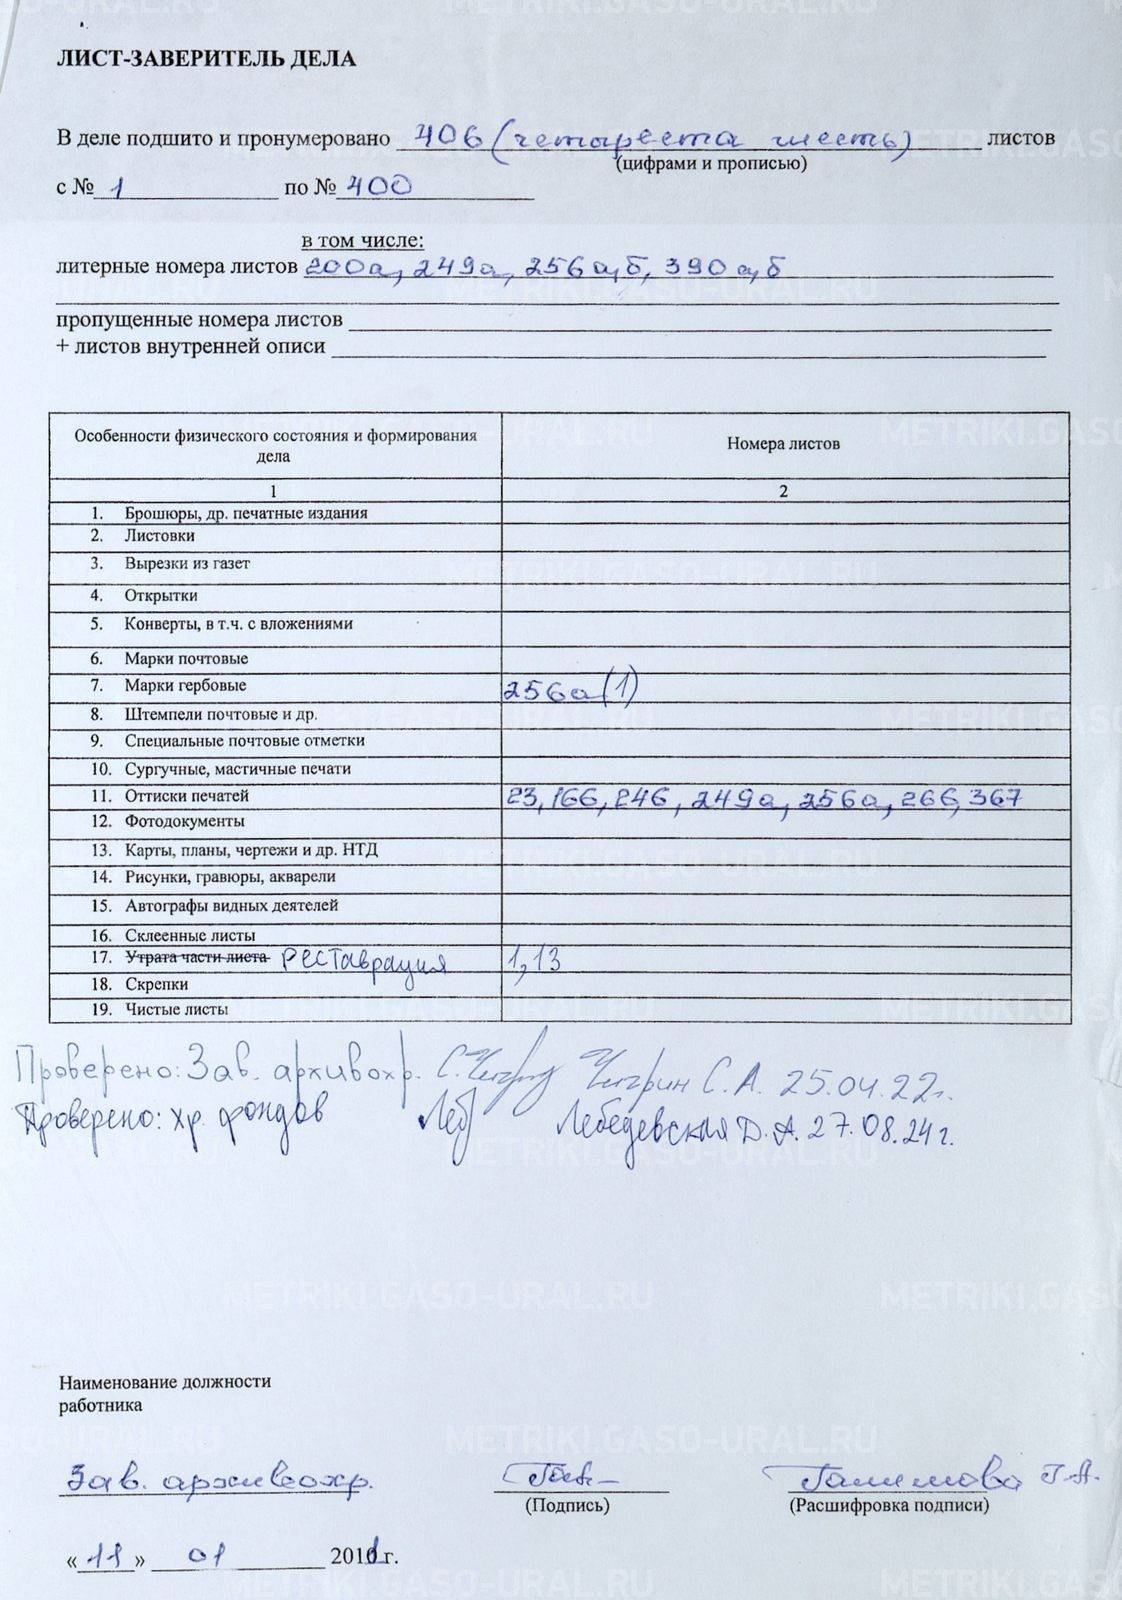 ЛИСТ-ЗАВЕРИТЕЛЬ ДЕЛА
В деле подшито и пронумеровано 406 (четыреста шесть) листов
(цифрами и прописью)
с № 1 по № 400
в том числе:
литерные номера листов 200а, 249а, 256а,б, 390а,б
пропущенные номера листов
+ листов внутренней описи
Особенности физического состояния и формирования дела Номера листов
1 2
1. Брошюры, др. печатные издания
2. Листовки
3. Вырезки из газет
4. Открытки
5. Конверты, в т.ч. с вложениями
6. Марки почтовые
7. Марки гербовые 256а(1)
8. Штемпели почтовые и др.
9. Специальные почтовые отметки
10. Сургучные, мастичные печати
11. Оттиски печатей 23, 166, 246, 249а, 256а, 266, 367
12. Фотодокументы
13. Карты, планы, чертежи и др. НТД
14. Рисунки, гравюры, акварели
15. Автографы видных деятелей
16. Склеенные листы
17. Утрата части листа Реставрация 1, 13
18. Скрепки
19. Чистые листы
Проверено: Зав. архивохр. Чигрин С.А. 25.04.22г.
Проверено: хр. фондов Леб Лебедевская Д.А. 27.08.24г.
Наименование должности
работника
Зав. архивохр. Галимова Г.А.
(Подпись) (Расшифровка подписи)
«11» 01 2011г.
METRIKI.GASO-URAL.RU